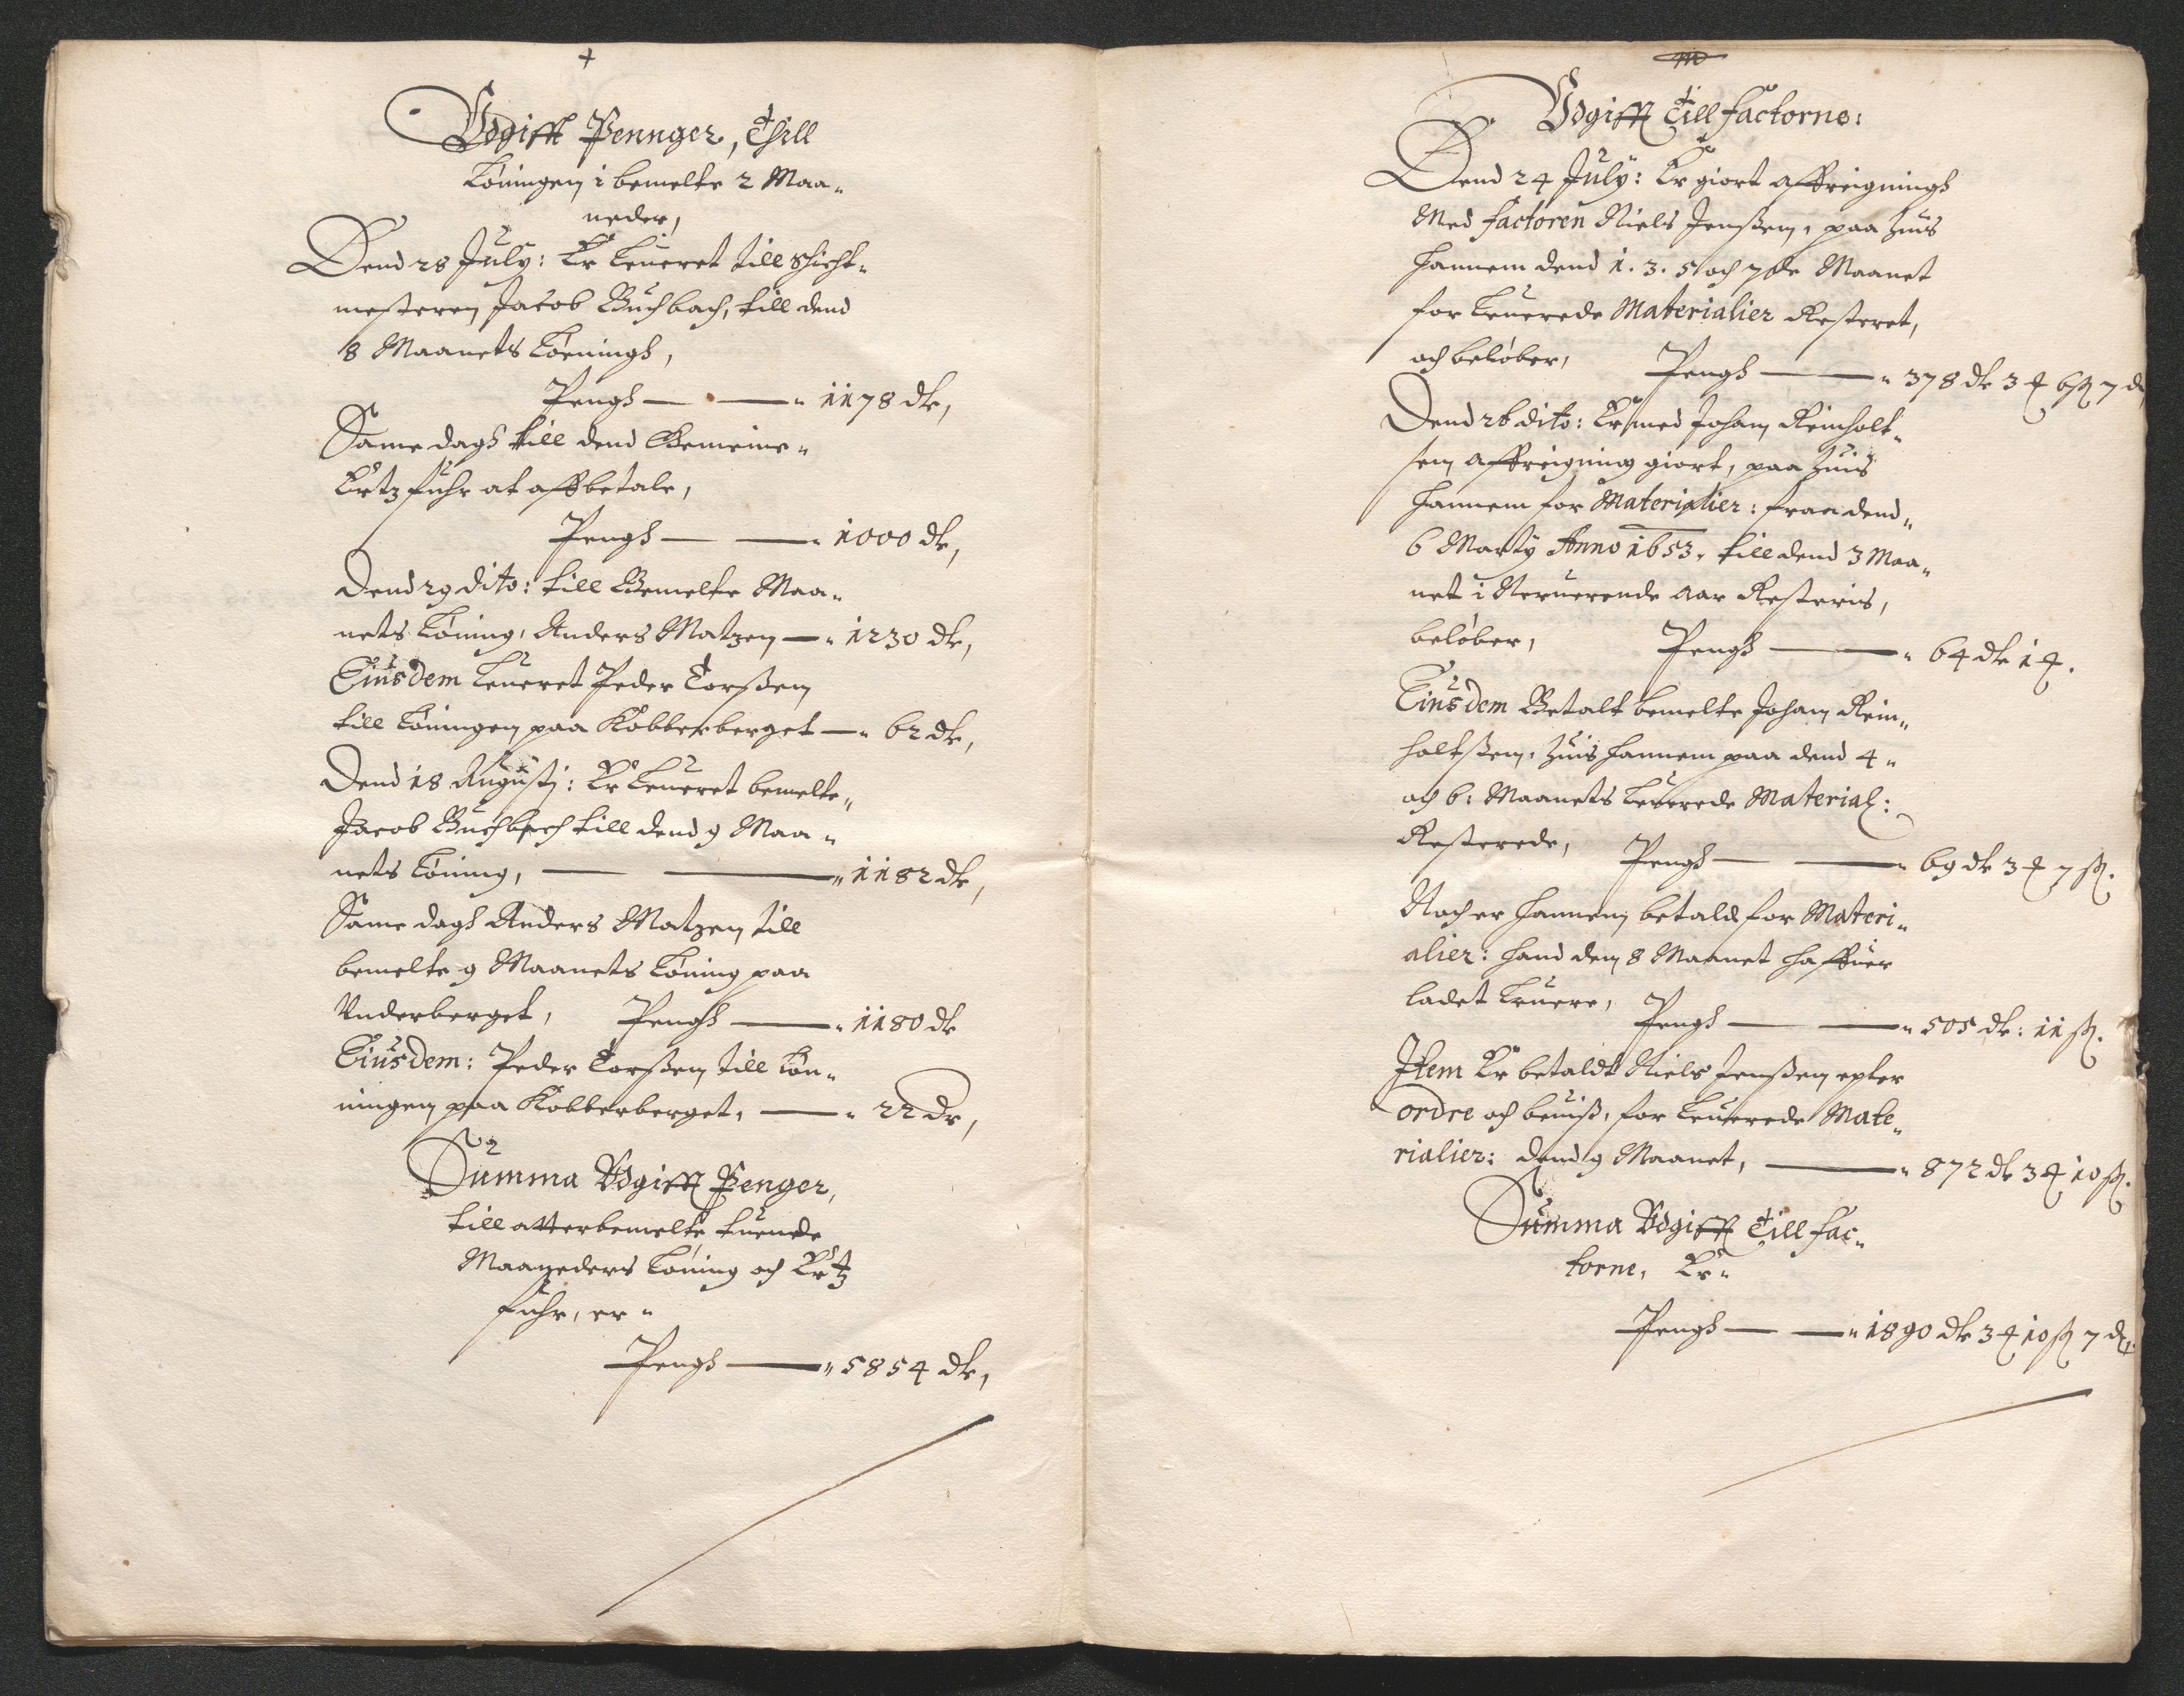 Vdgifft Pennger, Thill
Löningen i bemelte 2 Maa„
neder,
Dend 28 July: Er Leueret till Schicht„
mesteren Jacob Buchbach, till dend
8 Maanets Löeningh,
Pengh — — „ 1178 dlr,
Same dagh till dend Gemeine„
Ertzfuhr at affbetale,
Pengh — — „ 1000 dlr,
Dend 29 dito: till Bemelte Maa„
nets Löning, Anders Matzen — „ 1230 dlr,
Eiusdem Leueret Peder Torßen
till Löningen paa Kobberberget — „ 62 dlr,
Dend 18 Augustj: Er Leueret bemelte„
Jacob Buchbach till dend 9 Maa„
nets Löning, — — „ 1182 dlr,
Same dagh Anders Matzen till
bemelte 9 Maanets Löning paa
Vnderberget, Pengh — „ 1180 dlr
Eiusdem: Peder Torßen till Lön„
ningen paa Kobberberget, — „ 22 dr,
Summa Vdgifft Penger,
till atterbemelte tuende
Maaneders Löning och Ertz
fuhr, er „
Pengh — „ 5854 dlr,
Vdgifft Till factorne:
Dend 24 July: Er giort affreigningh
Med factoren Niels Jenßen, paa huis
hannem dend 1. 3. 5 och 7de Maanet
for Leuerede Materialier Resteret,
och belöber, Pengh — „ 378 dlr 3 ort 6 ß 7 d
Dend 26 dito: Er med Johan Reinholt„
sen affreigning giort, paa huis
hannem for Materialier: fraa dend„
6 Marty Anno 1653, till dend 3 Maa„
net i Neruerende aar Resteris,
belöber, Pengh — „ 64 dlr 1 ort.
Eiusdem Betalt bemelte Johan Rein„
holtßen, huis hannem paa dend 4„
och 6: Maanets Leuerede Material:
Resterede, Pengh — — „ 69 dlr 3 ort 7 ß.
Noch er hannem betald for Materi„
alier: hand den 8 Maanet haffuer
ladet Leuere, Pengh — — „ 505 dlr: 11 ß.
Item Er betaldt Niels Jenßen epter
ordre och beuiß, for Leuerede Mate„
rialier: dend 9 Maanet, — „ 872 dlr 3 ort 10 ß.
Summa Vdgifft Till fac„
torne, Er „
Pengh — — „ 1890 dlr 3 ort 10 ß 7 d